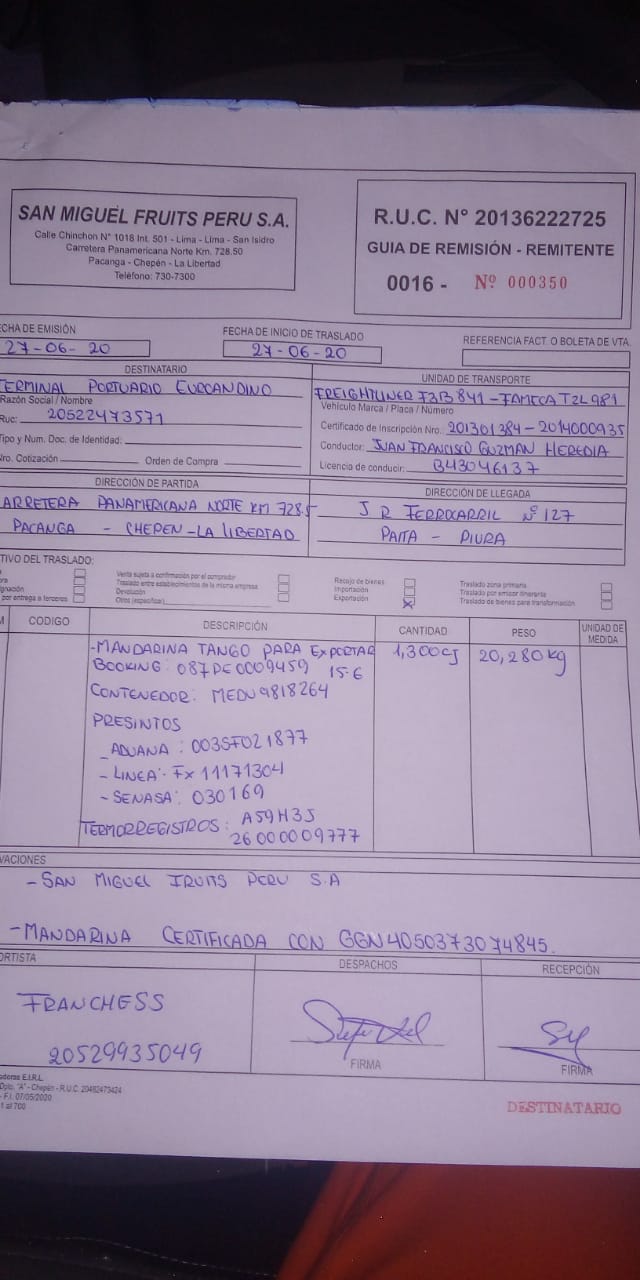 SAN MIGUEL FRUITS PERU S.A.
Calle Chinchon N° 1018 Int. 501 - Lima - Lima - San Isidro
Carretera Panamericana Norte Km. 728.50
Pacanga - Chepén - La Libertad
Teléfono: 730-7300
R.U.C. N° 20136222725
GUIA DE REMISIÓN - REMITENTE
0016 - Nº 000350
CHA DE EMISIÓN
27-06-20
FECHA DE INICIO DE TRASLADO
27-06-20
REFERENCIA FACT. O BOLETA DE VTA.
DESTINATARIO
TERMINAL PORTUARIO EUROANDINO
Razón Social / Nombre
Ruc: 20522473571
Tipo y Num. Doc. de Identidad:
Nro. Cotización Orden de Compra
UNIDAD DE TRANSPORTE
FREIGHTLINER F3B841 - FAMECA T2L981
Vehículo Marca / Placa / Número
Certificado de Inscripción Nro.: 201301384-2014000935
Conductor: JUAN FRANCISCO GUZMAN HEREDIA
Licencia de conducir: B43046137
DIRECCIÓN DE PARTIDA
ARRETERA PANAMERICANA NORTE KM 728.5
PACANGA - CHEPEN - LA LIBERTAD
DIRECCIÓN DE LLEGADA
JR FERROCARRIL Nº 127
PAITA - PIURA
TIVO DEL TRASLADO:
por entrega a terceros
Venta sujeta a confirmación por el comprador
Traslado entre establecimientos de la misma empresa
Devolución
Otros (especificar)
Recojo de bienes
Importación
Exportación X
Traslado zona primaria
Traslado por emisor itinerante
Traslado de bienes para transformación
CODIGO DESCRIPCIÓN CANTIDAD PESO UNIDAD DE MEDIDA
-MANDARINA TANGO PARA EXPORTAR 1,300CJ 20,280kg
BOOKING: 087PE0009459 15.6
CONTENEDOR: MEDU9818264
PRESINTOS
- ADUANA: 003SF021877
- LINEA: FX11171304
- SENASA: 030169
TERMORREGISTROS: A59H3J
2600009777
VACIONES
- SAN MIGUEL FRUITS PERU S.A
- MANDARINA CERTIFICADA CON GGN4050373074845.
ORTISTA
FRANCHESS
20529935049
DESPACHOS
FIRMA
RECEPCIÓN
FIRMA
Dpto. "A" - Chepén - R.U.C. 20482473424
- F.I. 07/05/2020
1 al 700
DESTINATARIO